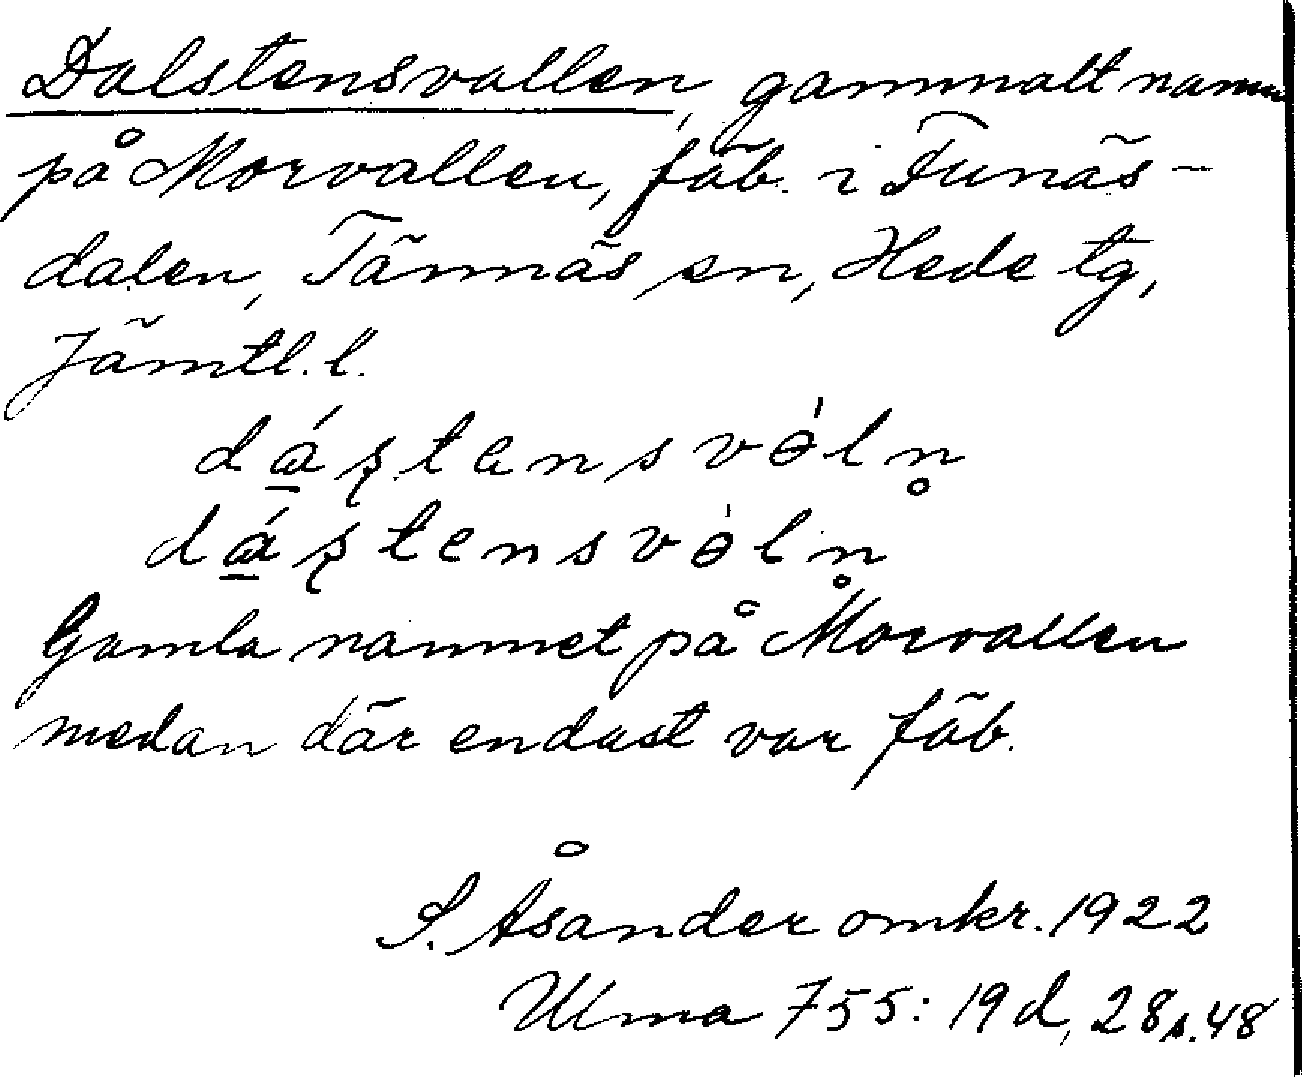 Dalstensvallen, gammalt namn
på Morvallen, fäb. i Funäs-
dalen, Tännäs sn, Hede tg,
Jämtl. l.
Gamla namnet på Morvallen
medan där endast var fäb.
S. Åsander omkr. 1922
Ulma 755: 19d, 28 s. 48